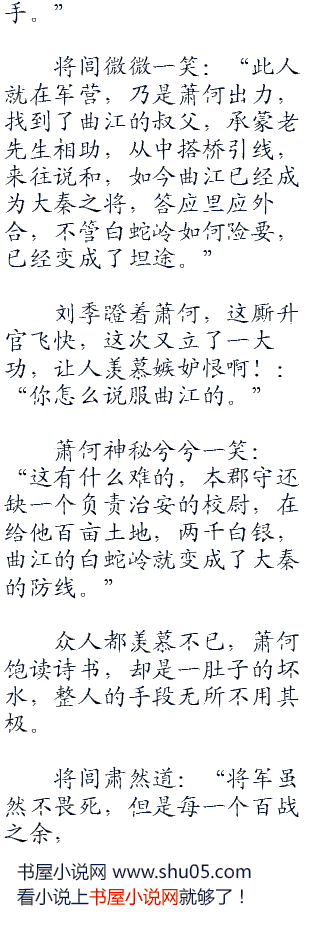 手。”
将闾微微一笑：“此人
就在军营，乃是萧何出力，
找到了曲江的叔父，承蒙老
先生相助，从中搭桥引线，
来往说和，如今曲江已经成
为大秦之将，答应里应外
合，不管白蛇岭如何险要，
已经变成了坦途。”
刘季瞪着萧何，这厮升
官飞快，这次又立了一大
功，让人羡慕嫉妒恨啊！：
“你怎么说服曲江的。”
萧何神秘兮兮一笑：
“这有什么难的，本郡守还
缺一个负责治安的校尉，在
给他百亩土地，两千白银，
曲江的白蛇岭就变成了大秦
的防线。”
众人都羡慕不已，萧何
饱读诗书，却是一肚子的坏
水，整人的手段无所不用其
极。
将闾肃然道：“将军虽
然不畏死，但是每一个百战
之余，
书屋小说网 www.shu05.com
看小说上书屋小说网就够了！